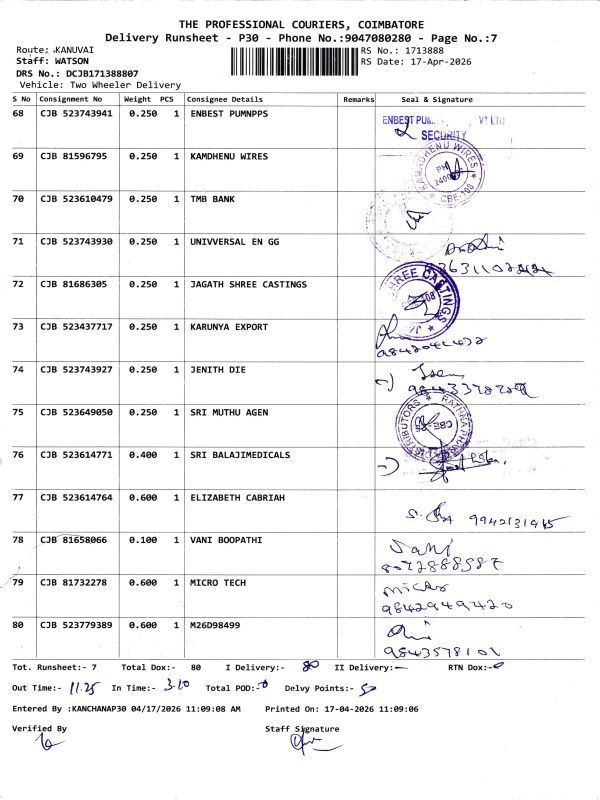 THE PROFESSIONAL COURIERS, COIMBATORE
Delivery Runsheet - P30 - Phone No.:9047080280 - Page No.:7
Route: KANUVAI RS No.: 1713888
Staff: WATSON RS Date: 17-Apr-2026
DRS No.: DCJB171388807
Vehicle: Two Wheeler Delivery
S No Consignment No Weight PCS Consignee Details Remarks Seal & Signature
68 CJB 523743941 0.250 1 ENBEST PUMNPPS
SECURITY
69 CJB 81596795 0.250 1 KAMDHENU WIRES KAMADHENU WIRES CBE-108
70 CJB 523610479 0.250 1 TMB BANK
71 CJB 523743930 0.250 1 UNIVVERSAL EN GG
72 CJB 81686305 0.250 1 JAGATH SHREE CASTINGS SHREE CASTINGS
73 CJB 523437717 0.250 1 KARUNYA EXPORT
74 CJB 523743927 0.250 1 JENITH DIE
75 CJB 523649050 0.250 1 SRI MUTHU AGEN
76 CJB 523614771 0.400 1 SRI BALAJIMEDICALS
77 CJB 523614764 0.600 1 ELIZABETH CABRIAH
78 CJB 81658066 0.100 1 VANI BOOPATHI
8072888587
79 CJB 81732278 0.600 1 MICRO TECH micro
9842949420
80 CJB 523779389 0.600 1 M26D98499
9843578101
Tot. Runsheet:- 7 Total Dox:- 80 I Delivery:- 80 II Delivery:- RTN Dox:-
Out Time:- 11.25 In Time:- 3.10 Total POD:- Delvy Points:- 50
Entered By :KANCHANAP30 04/17/2026 11:09:08 AM Printed On: 17-04-2026 11:09:06
Verified By Staff Signature